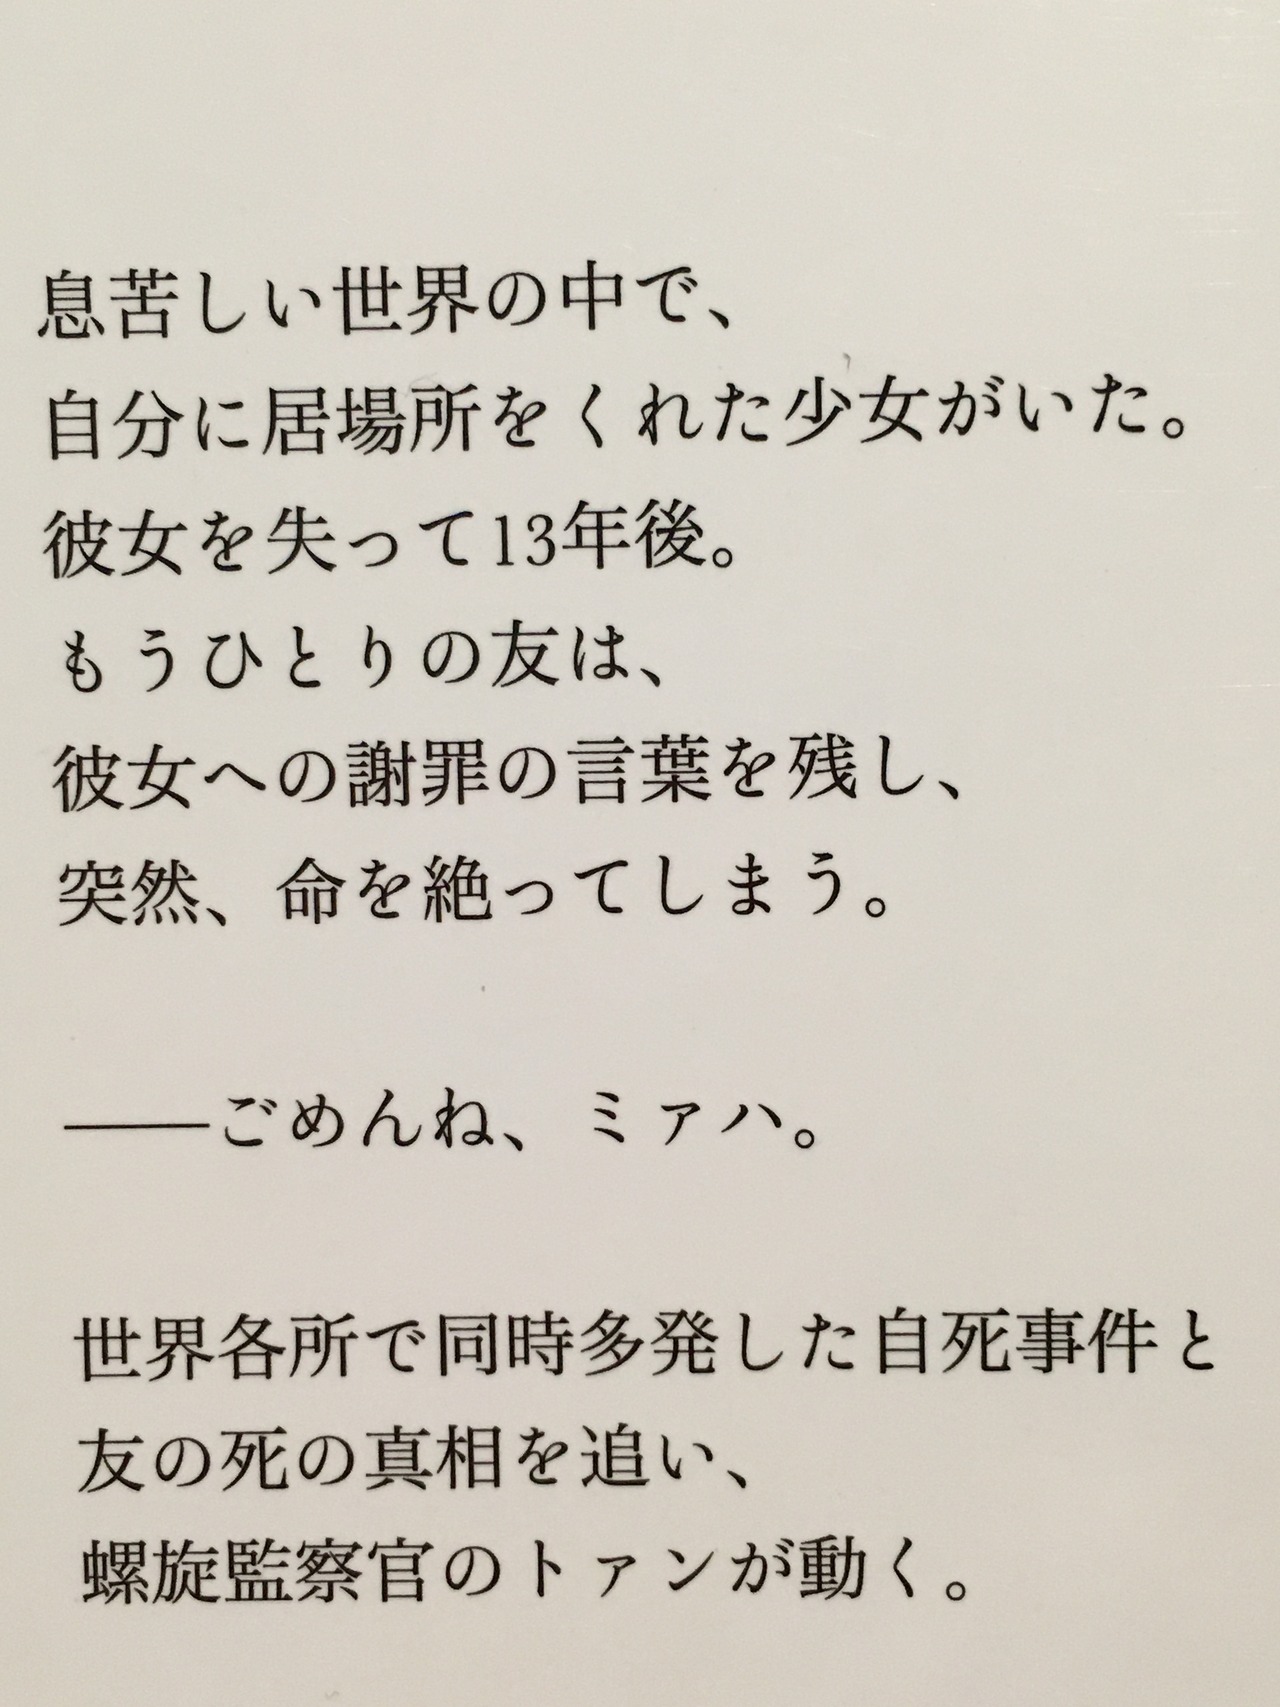 息苦しい世界の中で、
自分に居場所をくれた少女がいた。
彼女を失って13年後。
もうひとりの友は、
彼女への謝罪の言葉を残し、
突然、命を絶ってしまう。
――ごめんね、ミァハ。
世界各所で同時多発した自死事件と
友の死の真相を追い、
螺旋監察官のトァンが動く。